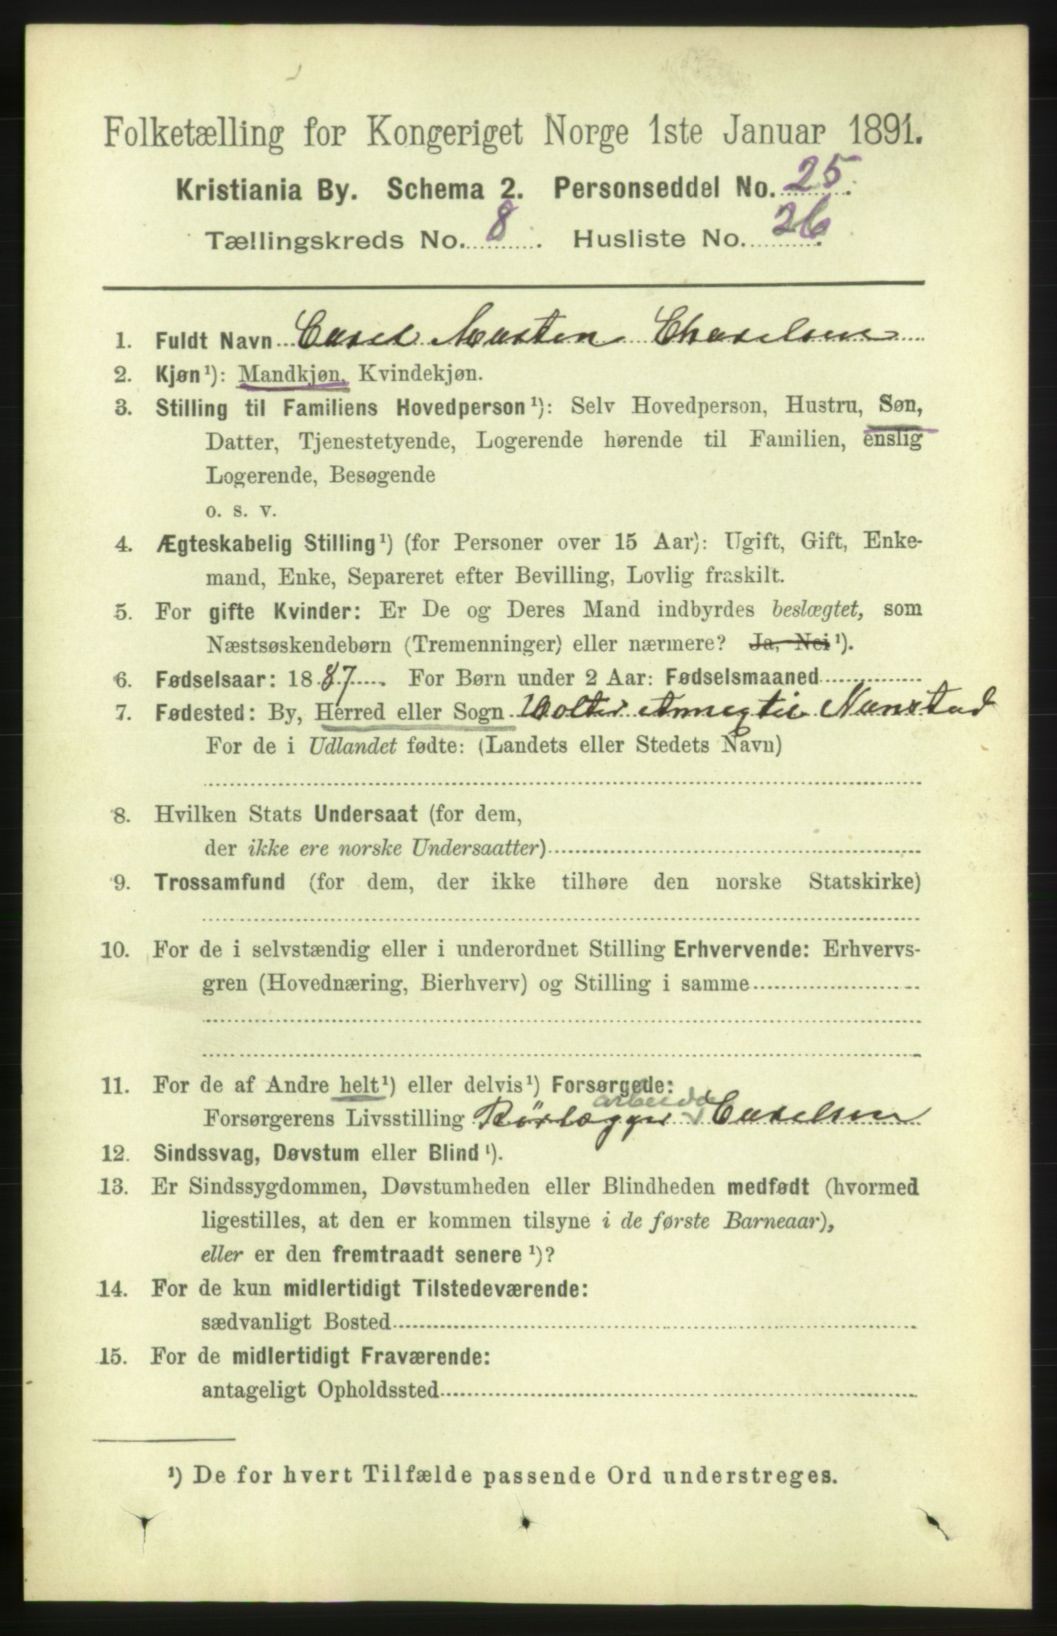 Folketælling for Kongeriget Norge 1ste Januar 1891.
Kristiania By. Schema 2. Personseddel No. 25.
Tællingskreds No. 8. Husliste No. 26.
1. Fuldt Navn Carel Marten
2. Kjøn¹): Mandkjøn, Kvindekjøn.
3. Stilling til Familiens Hovedperson¹): Selv Hovedperson, Hustru, Søn,
Datter, Tjenestetyende, Logerende hørende til Familien, enslig
Logerende, Besøgende
o. s. v.
4. Ægteskabelig Stilling¹) (for Personer over 15 Aar): Ugift, Gift, Enke-
mand, Enke, Separeret efter Bevilling, Lovlig fraskilt.
5. For gifte Kvinder: Er De og Deres Mand indbyrdes beslægtet, som
Næstsøskendebørn (Tremenninger) eller nærmere? Ja, Nei¹).
6. Fødselsaar: 1887. For Børn under 2 Aar: Fødselsmaaned
7. Fødested: By, Herred eller Sogn
For de i Udlandet fødte: (Landets eller Stedets Navn)
8. Hvilken Stats Undersaat (for dem,
der ikke ere norske Undersaatter)
9. Trossamfund (for dem, der ikke tilhøre den norske Statskirke)
10. For de i selvstændig eller i underordnet Stilling Erhvervende: Erhvervs-
gren (Hovednæring, Bierhverv) og Stilling i samme
11. For de af Andre helt¹) eller delvis¹) Forsørgede:
arbeider
Forsørgerens Livsstilling Rörlægger Carelsen
12. Sindssvag, Døvstum eller Blind¹).
13. Er Sindssygdommen, Døvstumheden eller Blindheden medfødt (hvormed
ligestilles, at den er kommen tilsyne i de første Barneaar),
eller er den fremtraadt senere¹)?
14. For de kun midlertidigt Tilstedeværende:
sædvanligt Bosted
15. For de midlertidigt Fraværende:
antageligt Opholdssted
¹) De for hvert Tilfælde passende Ord understreges.